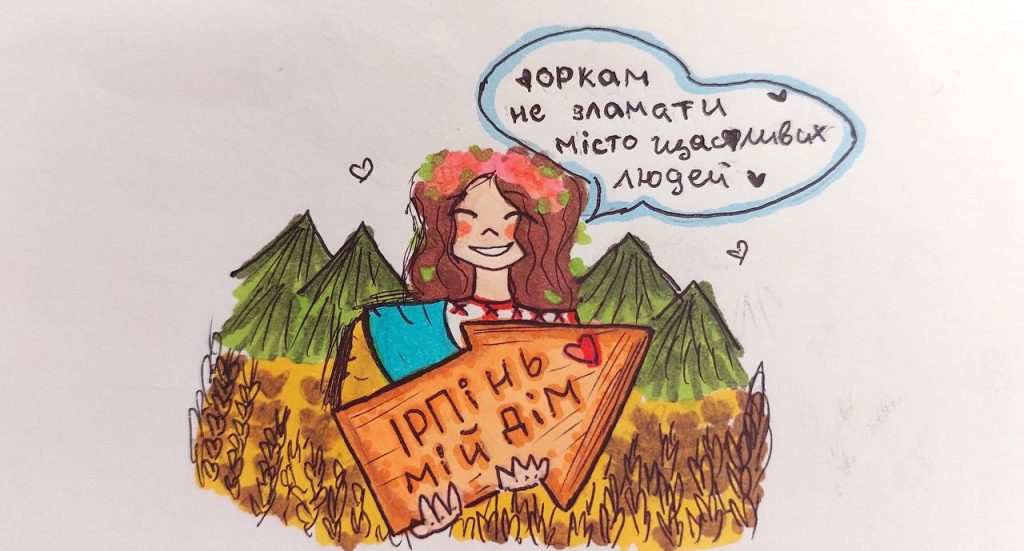 оркам
не зламати
місто щасливих
людей
ІРПІНЬ
МІЙ ДІМ